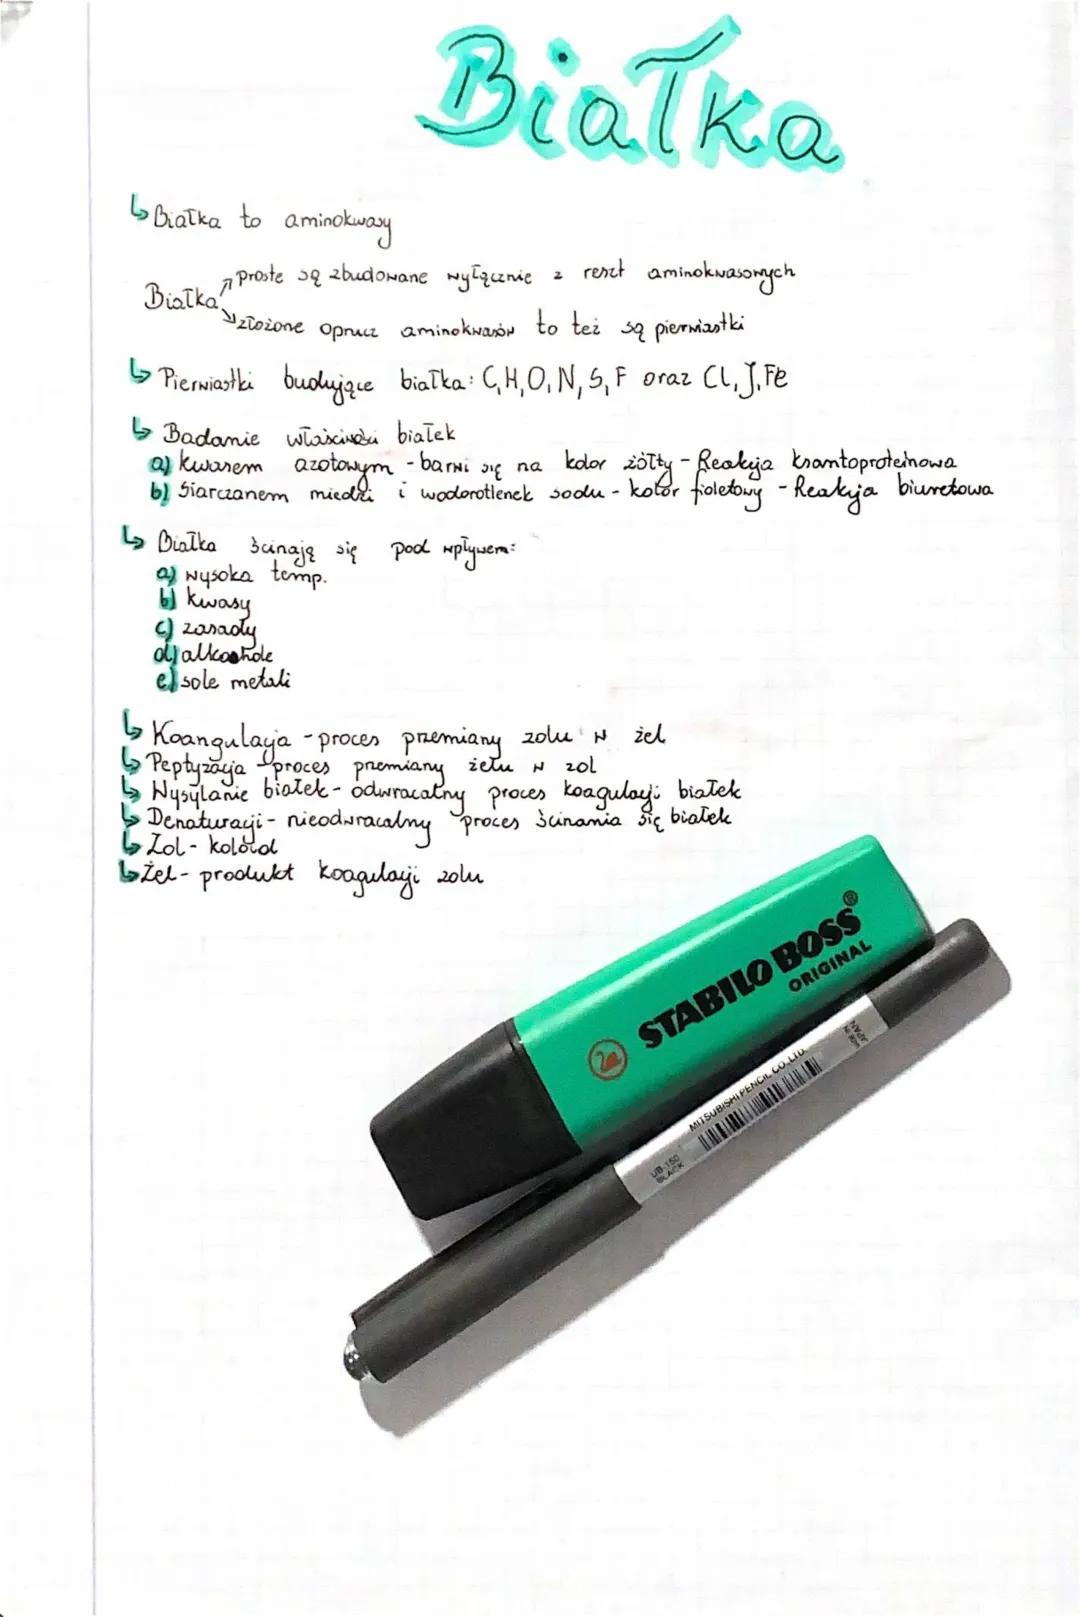 Białka
↳ Białka to aminokwasy
Białka
↗ proste są zbudowane wyłącznie z reszt aminokwasowych
↘ złożone oprucz aminokwasów to też są pierwiastki
↳ Pierwiastki budujące białka: C, H, O, N, S, F oraz Cl, J, Fe
↳ Badanie właściwości białek
a) kwasem azotowym - barwi się na kolor żółty - Reakcja ksantoproteinowa
b) Siarczanem miedzi i wodorotlenek sodu - kolor fioletowy - Reakcja biuretowa
↳ Białka ścinają się pod wpływem:
a) wysoka temp.
b) kwasy
c) zasady
d) alkohole
e) sole metali
↳ Koangulacja - proces przemiany zolu w żel
↳ Peptyzacja - proces przemiany żelu w zol
↳ Wysylanie białek - odwracalny proces koagulacji białek
↳ Denaturacji - nieodwracalny proces ścinania się białek
↳ Zol - koloid
↳ Żel - produkt koagulacji zolu
STABILO BOSS®
ORIGINAL
MITSUBISHI PENCIL CO., LTD.
MADE IN
JAPAN
UB-150
BLACK